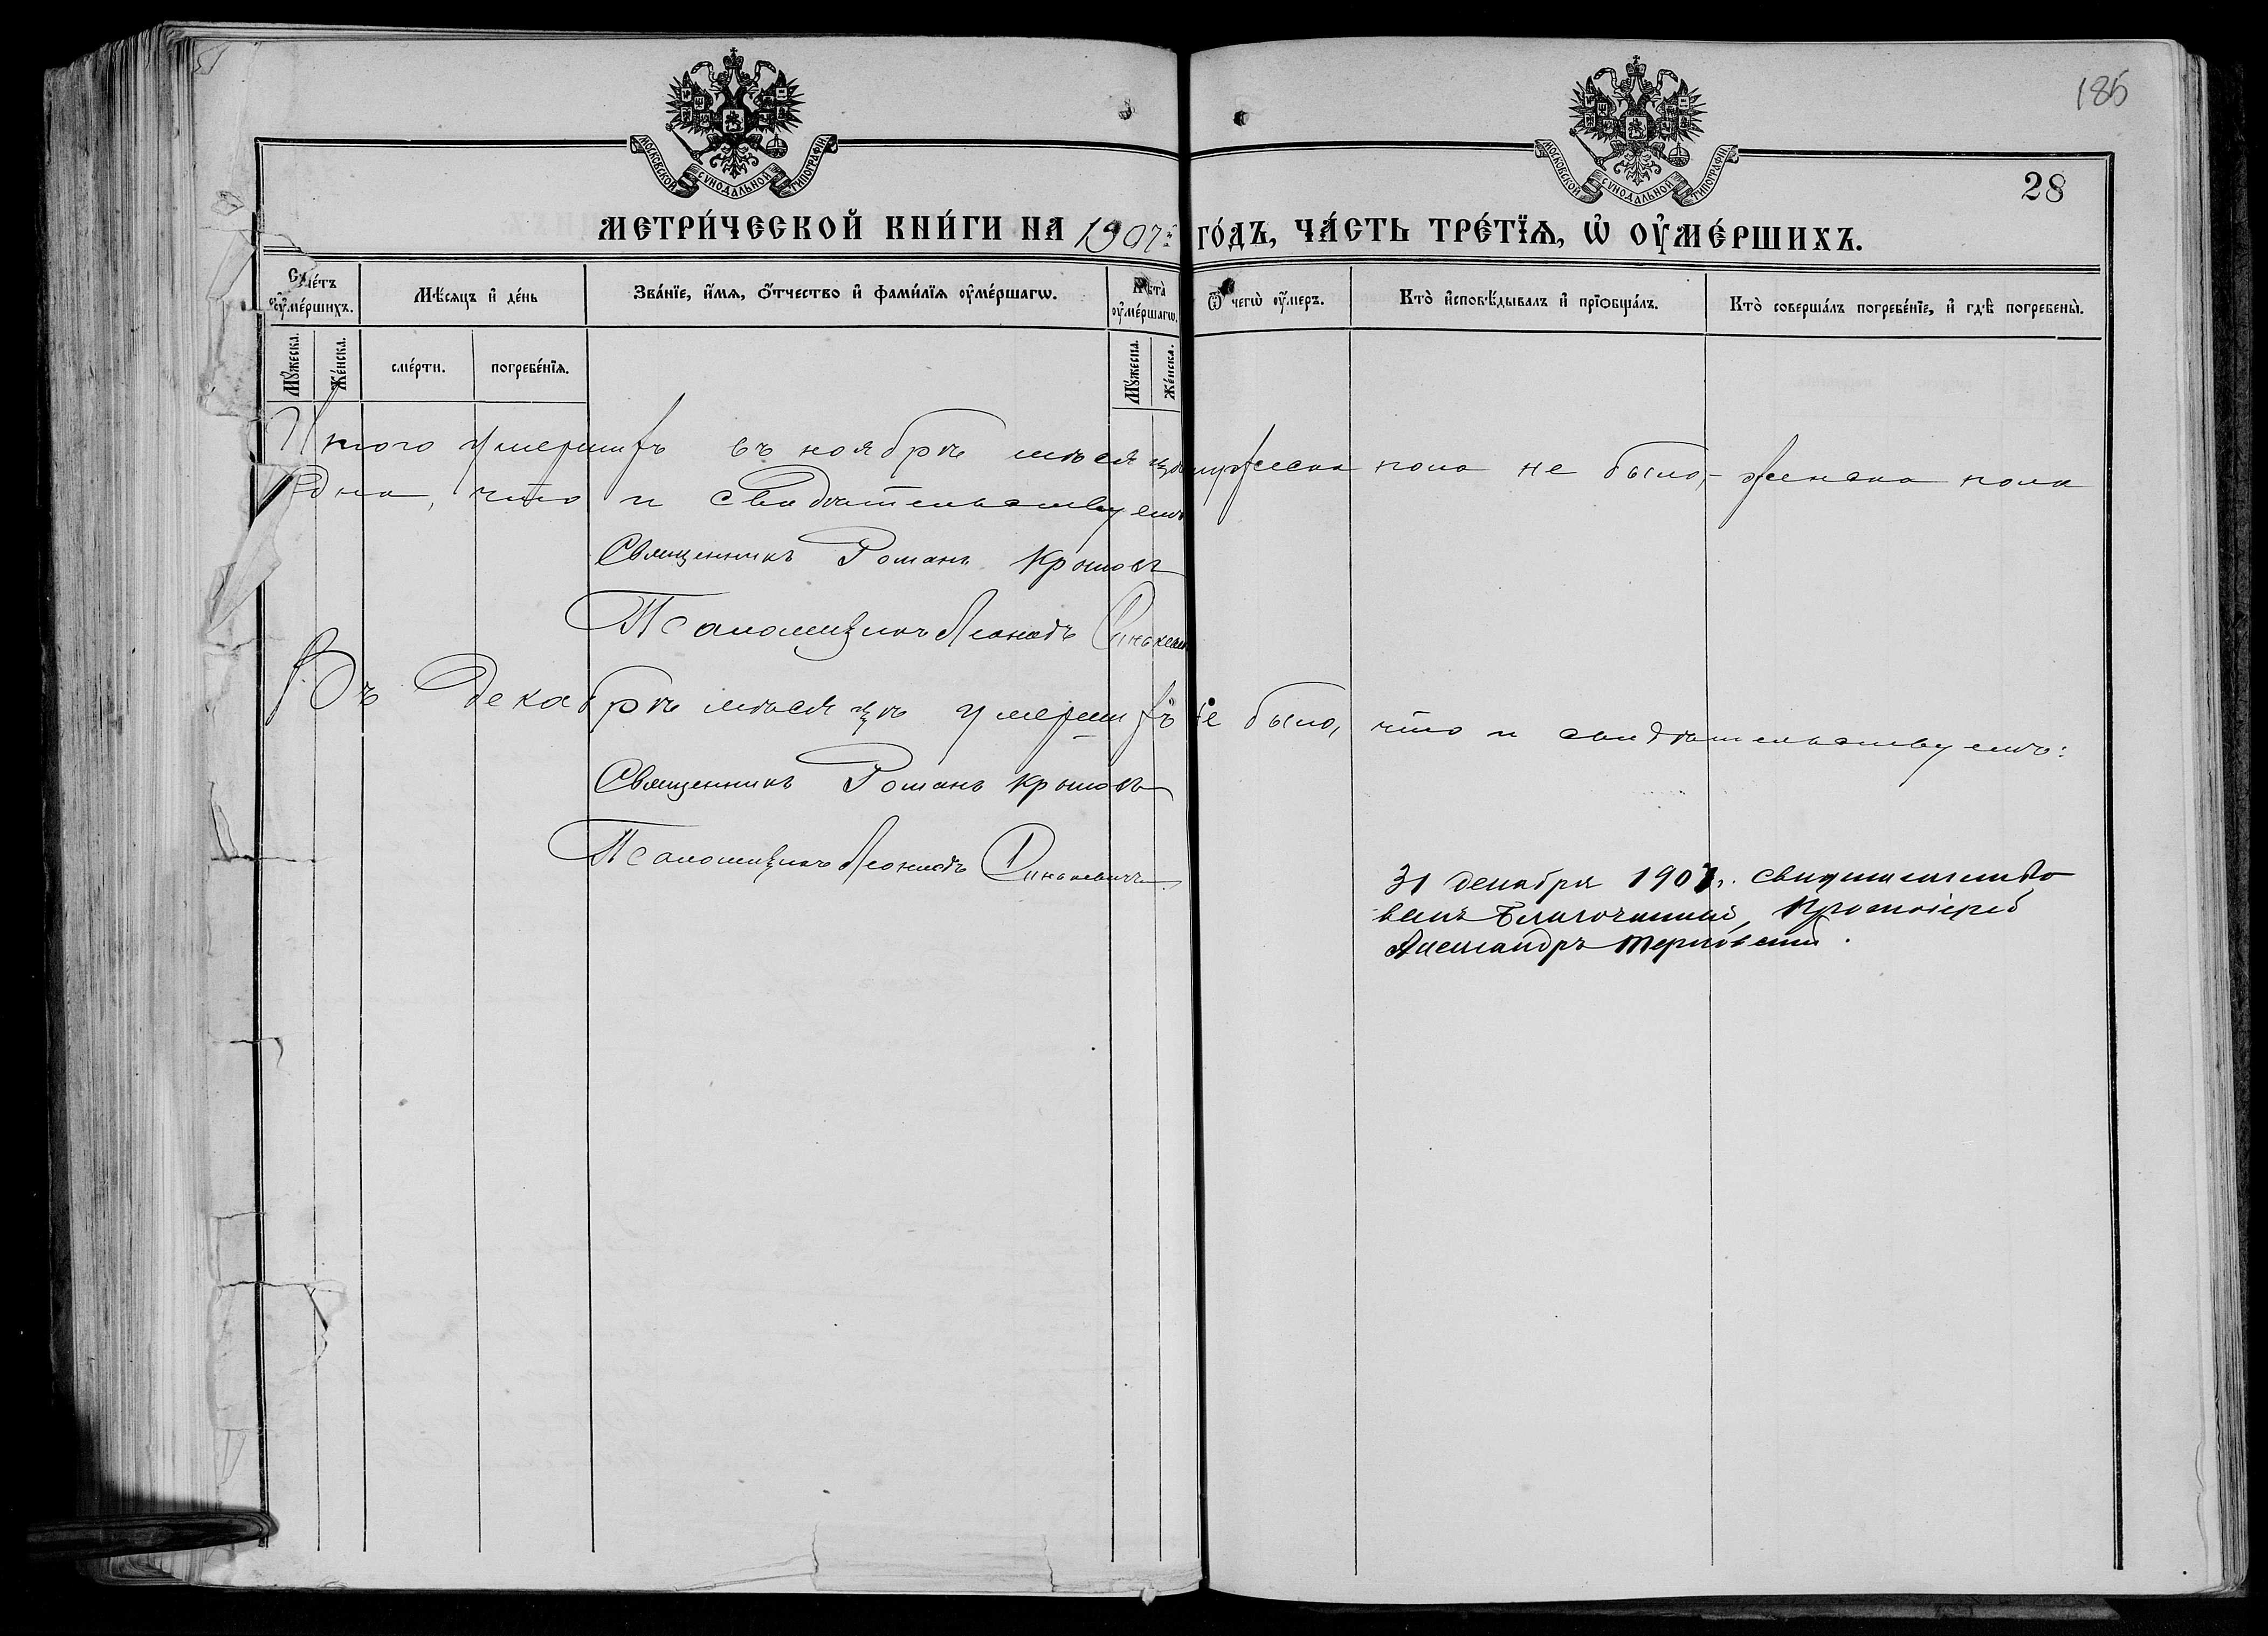 185
МОСКОВСКОЙ СѴНОДАЛЬНОЙ ТИПОГРАФІИ
МОСКОВСКОЙ СѴНОДАЛЬНОЙ ТИПОГРАФІИ
28
МЕТРИ́ЧЕСКОЙ КНИ́ГИ НА 1907й ГО́ДЪ, ЧА́СТЬ ТРЕ́ТЇѦ, Ѡ҆ ОУ҆МЕ́РШИХЪ.
Сче́тъ оу҆ме́ршихъ.
Мѣ́сяцъ и҆ де́нь
Зва́нїе, и҆́мѧ, ѻ҆́тчество и҆ фами́лїѧ оу҆ме́ршагѡ.
Лѣ́та оу҆ме́ршагѡ.
Ѿ чегѡ̀ оу҆́меръ.
Кто̀ и҆сповѣ́дывалъ и҆ прїѻбща́лъ.
Кто̀ соверша́лъ погребе́нїе, и҆ гдѣ̀ погребены̀.
Мꙋ́жеска.
Же́нска.
сме́рти.
погребе́нїѧ.
Мꙋ́жеска.
Же́нска.
Итого умершихъ въ ноябрѣ мѣсяцѣ мужеска пола не было, – женска пола
одна, что и свидѣтельствуемъ
Священникъ Романъ Крыловъ
Псаломщикъ Леонидъ Синькевичъ
Въ декабрѣ мѣсяцѣ умершихъ не было, что и свидѣтельствуемъ:
Священникъ Романъ Крыловъ
Псаломщикъ Леонидъ Синькевичъ.
31 декабря 1907 г. свидетельство
валъ Благочинный, Протоіерей
Александръ Терновский.